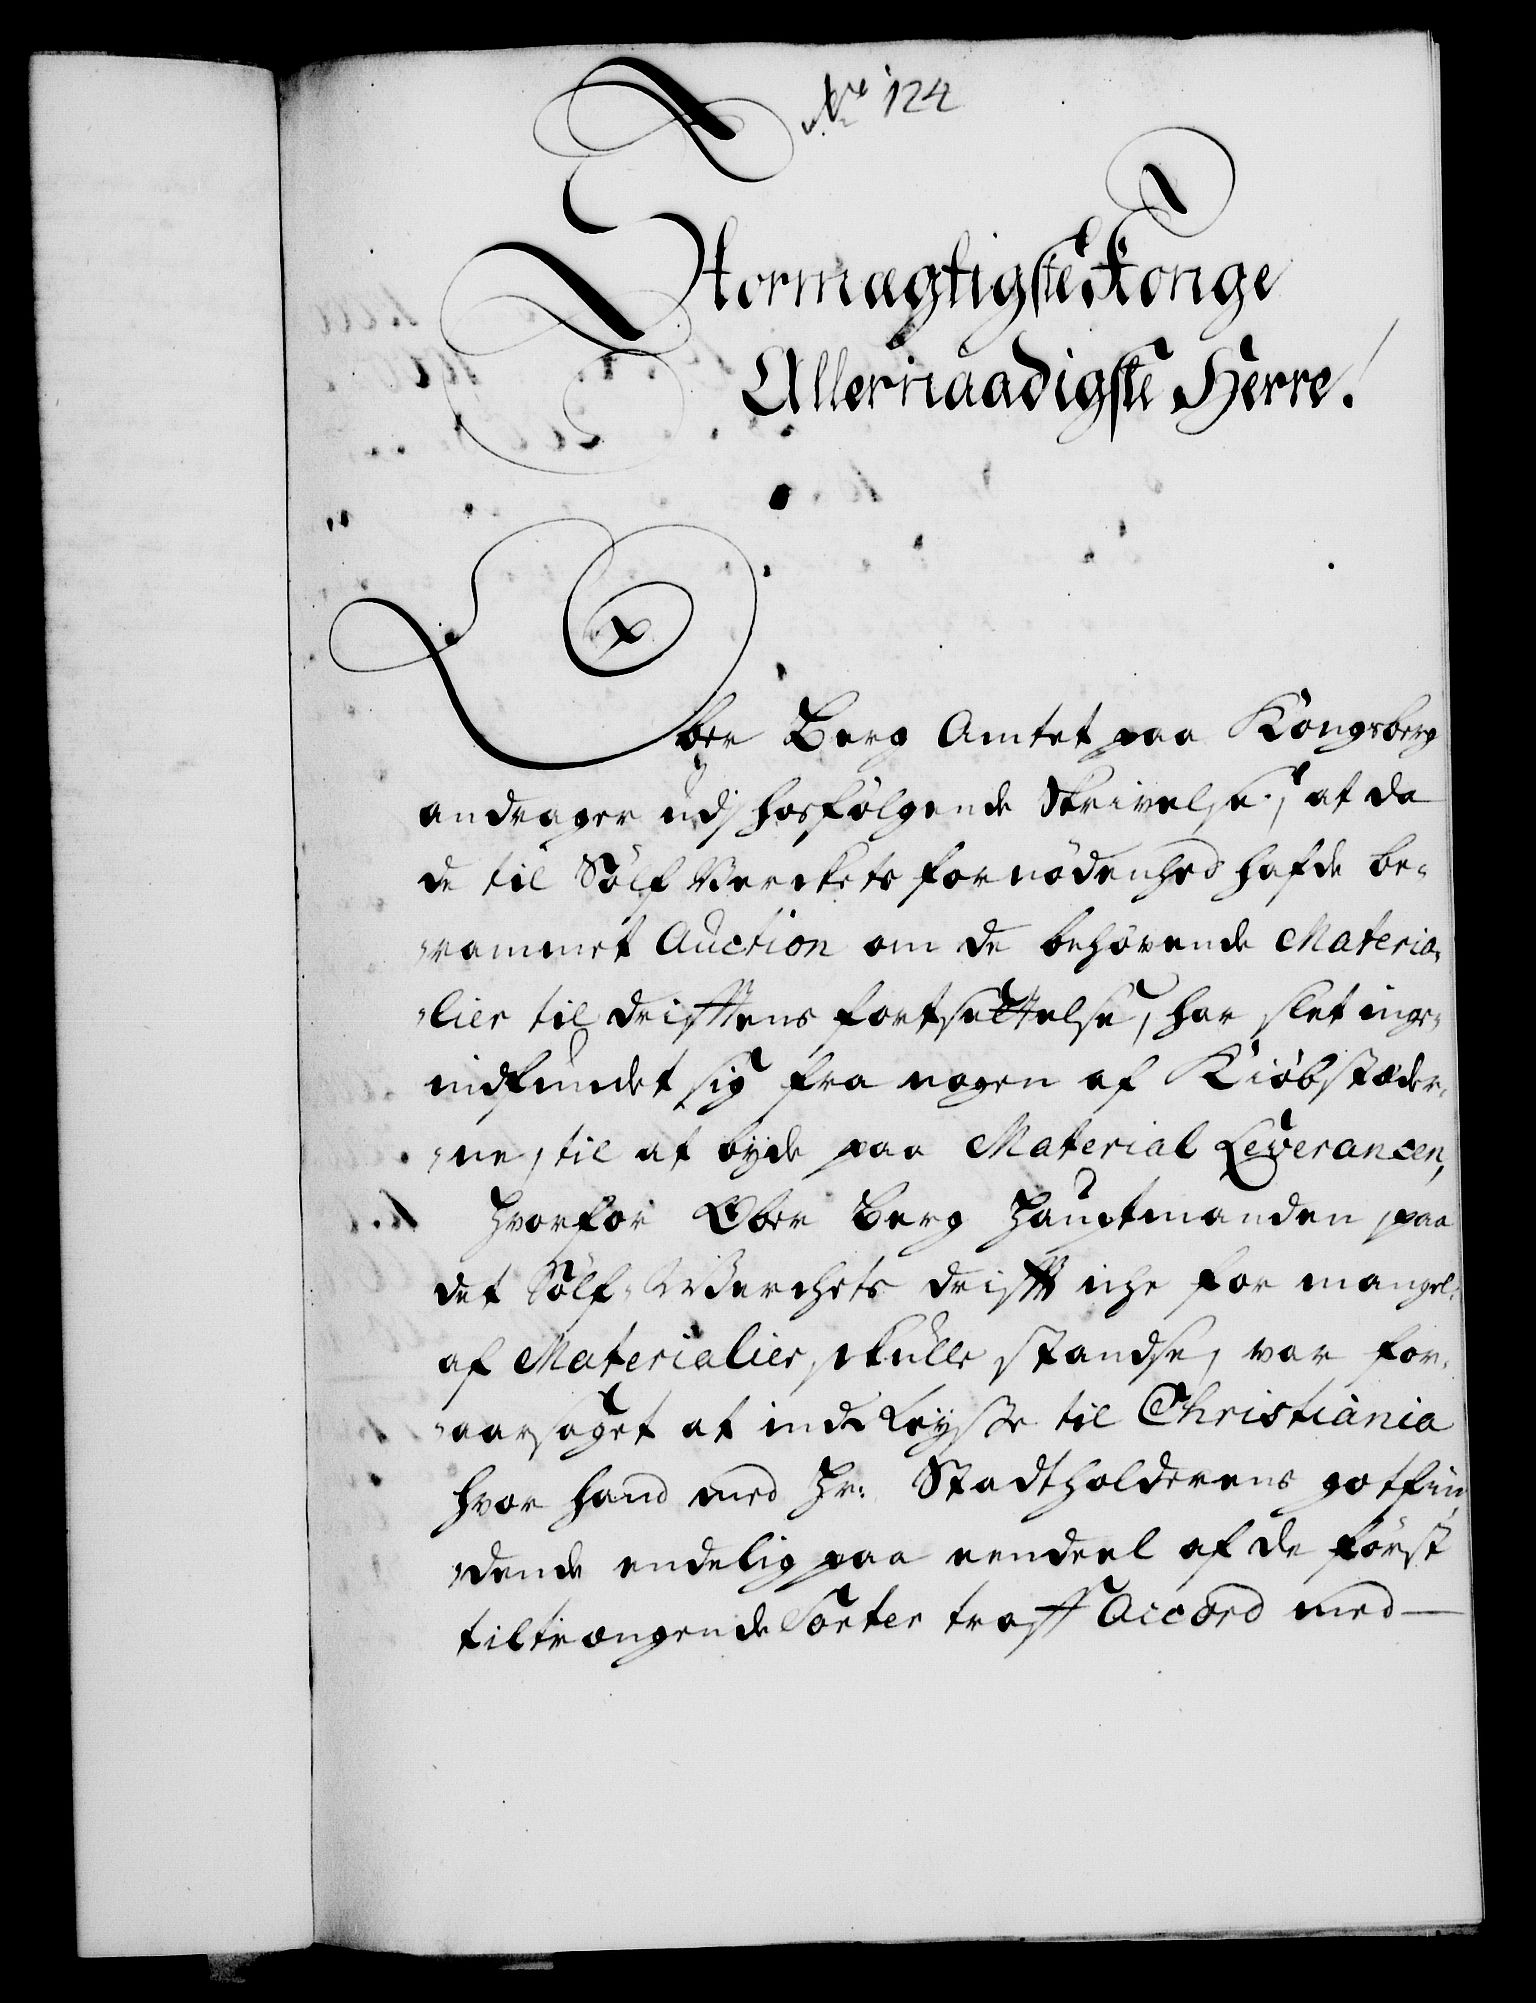 No 124
Stormægtigste Konge
Allernaadigste Herre!
Ober Berg Amtet paa Kongsberg
andrager udj hosfølgende Skrivelse, at da
de til Sølf Werckets fornødenhed hafde be-
rammet Auction om de behøvende Materia-
lier til drifftens fortsættelse, har slet inge
indfundet sig fra nogen af Kiøbstæder-
ne til at byde paa Material Leverancen,
Hvorfor Ober Berg Hauptmanden paa
det Sølf-Werchets drifft iche for mangel
af Materialier skulle standse, var for-
aarsaget at ind Reysse til Christiania
hvor hand med Hr: Stadtholderens gotfin-
dende endelig paa eendeel af de først
tiltrængende Sorter traff Accord med